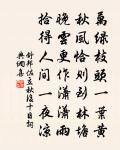 萬綠枝頭一葉黃
秋風恰到別林塘
晚雲更作瀟瀟雨
拾得人間一夜涼
舒邦佐立秋後十日詞
典調喜